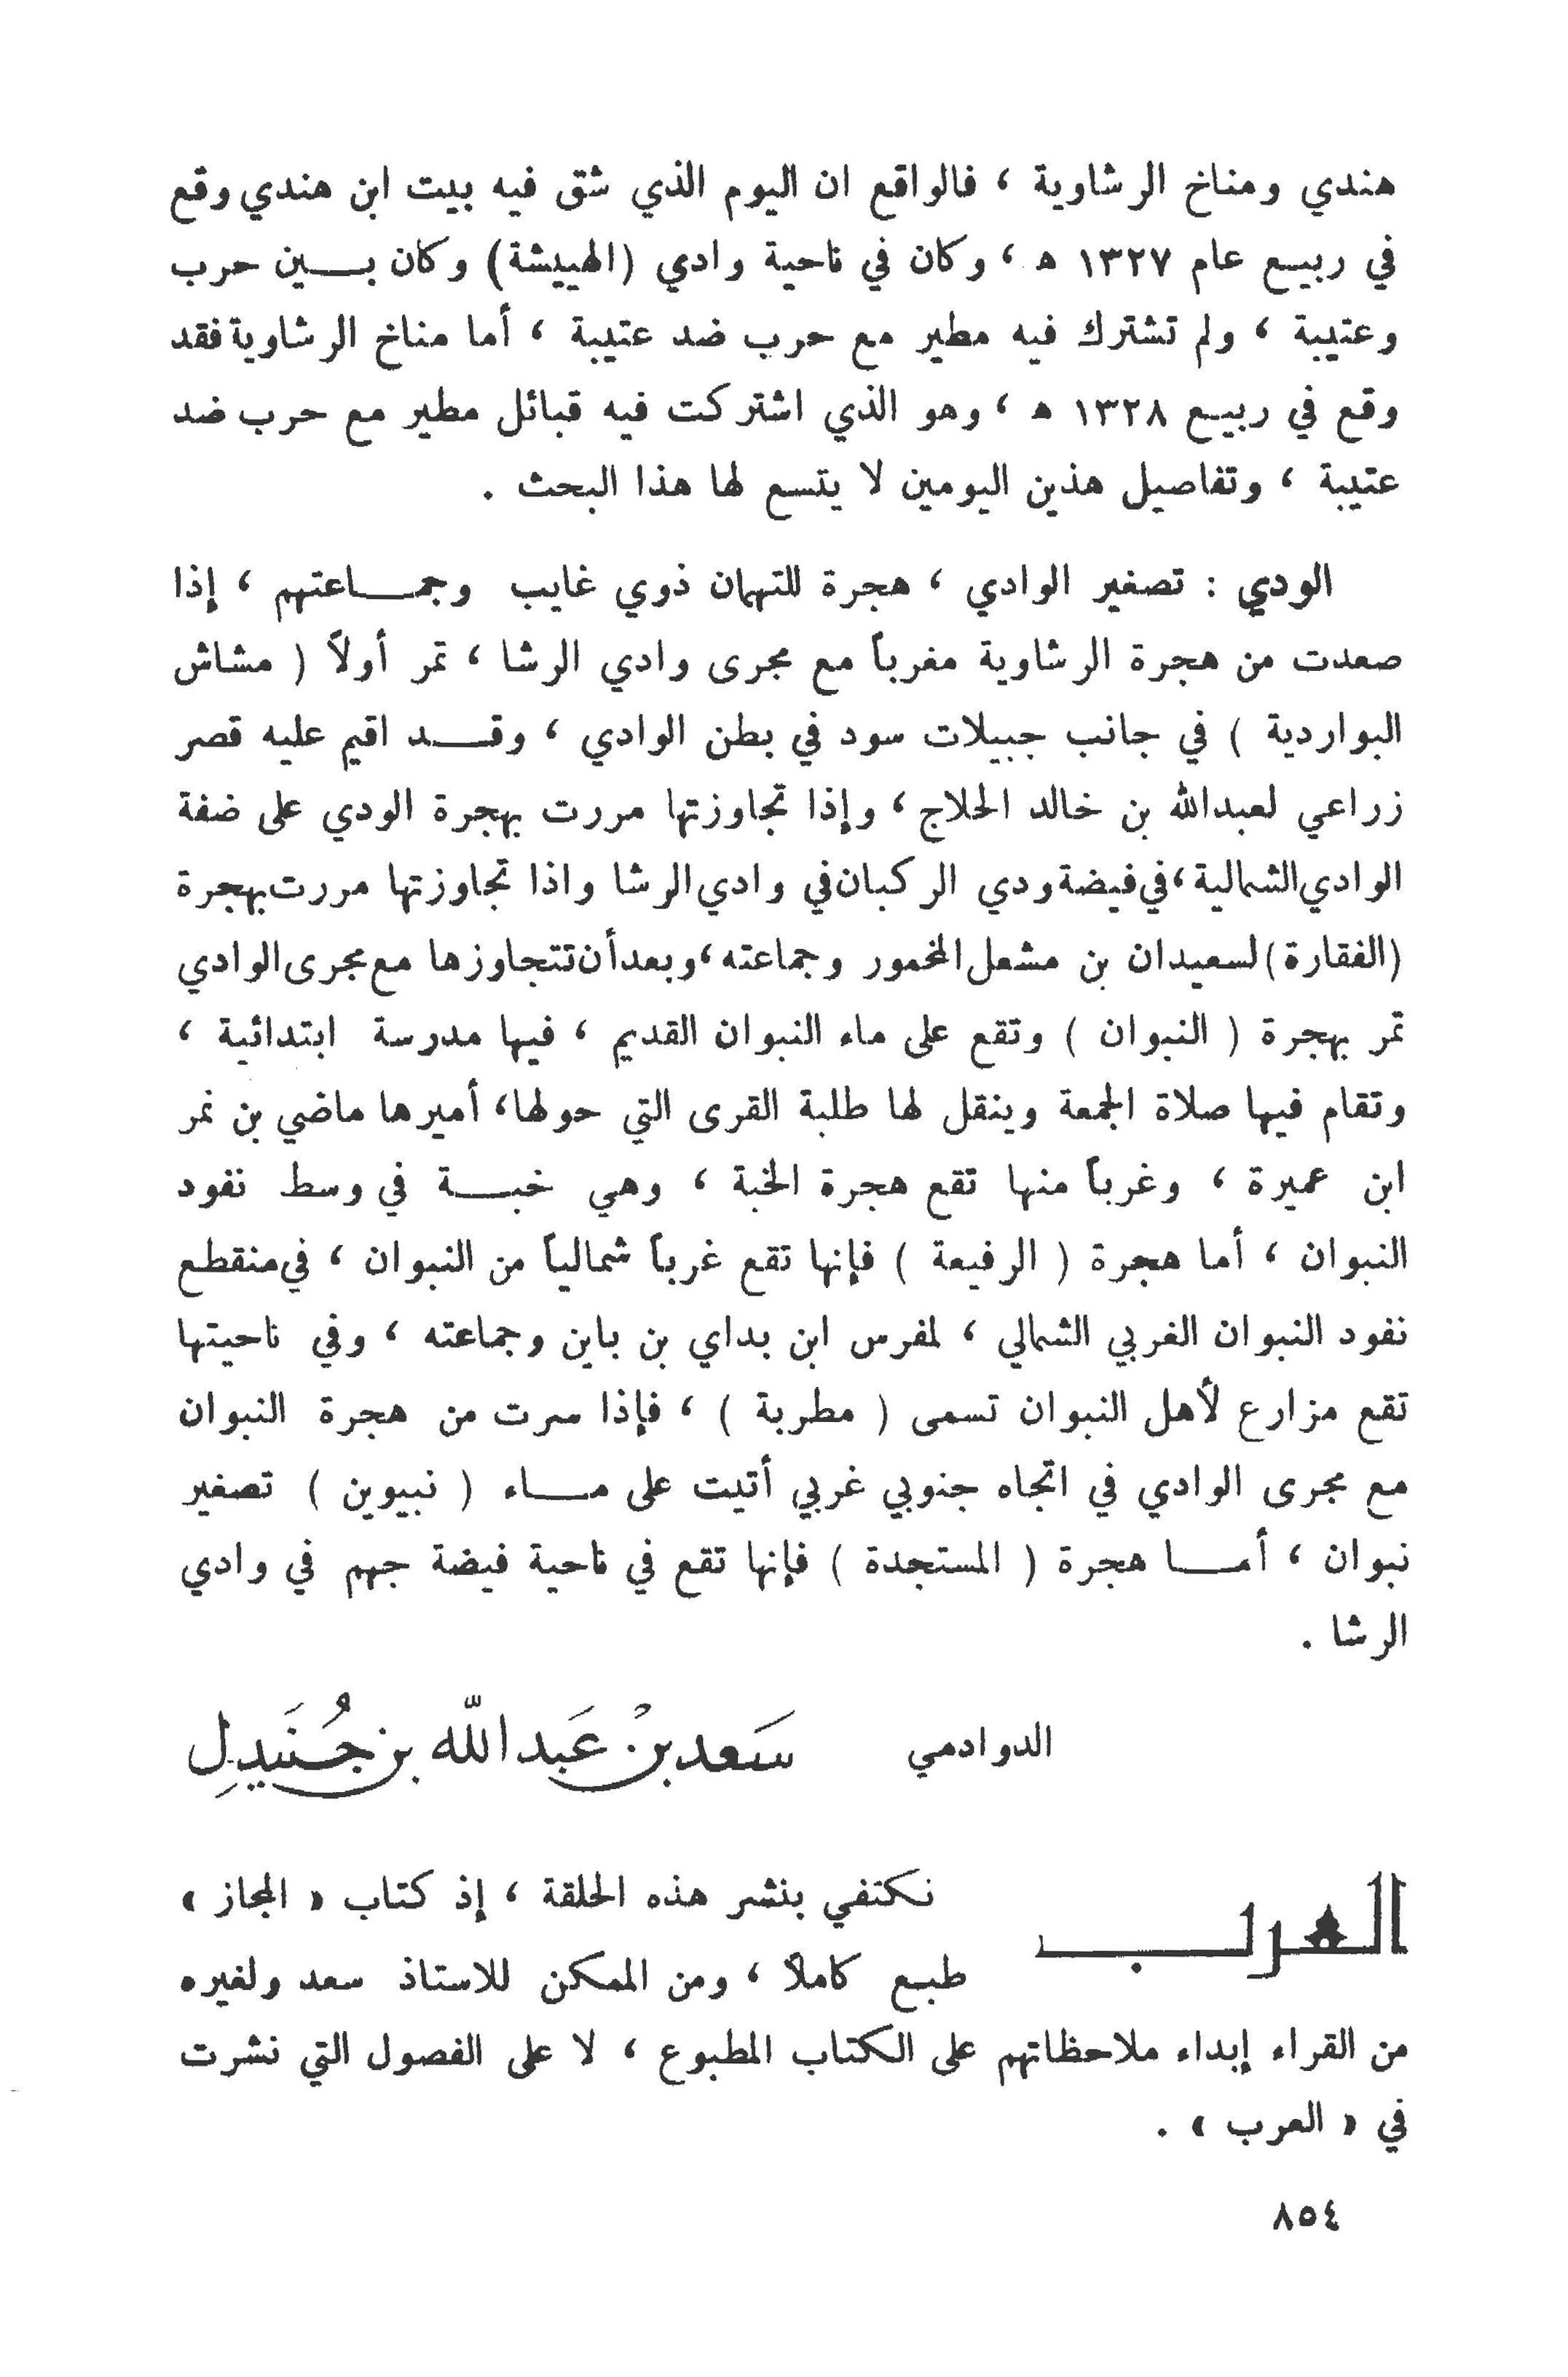 هندي ومناخ الرشاوية ، فالواقع ان اليوم الذي شق فيه بيت ابن هندي وقع
في ربيع عام ١٣٢٧ ه ، وكان في ناحية وادي (الهييشة) وكان بين حرب
وعتيبة ، ولم تشترك فيه مطير مع حرب ضد عتيبة ، أما مناخ الرشاوية فقد
وقع في ربيع ١٣٢٨ ه ، وهو الذي اشتركت فيه قبائل مطير مع حرب ضد
عتيبة ، وتفاصيل هذين اليومين لا يتسع لها هذا البحث .
الودي : تصغير الوادي ، هجرة للتهمان ذوي غايب وجماعتهم ، إذا
صعدت من هجرة الرشاوية مغرباً مع مجرى وادي الرشا ، تمر أولاً ( مشاش
البواردية ) في جانب جبيلات سود في بطن الوادي ، وقد اقيم عليه قصر
زراعي لعبدالله بن خالد الحلاج ، وإذا تجاوزتها مررت بهجرة الودي على ضفة
الوادي الشمالية ، في فيضة ودي الركبان في وادي الرشا واذا تجاوزتها مررت بهجرة
(الفقارة) لسعيدان بن مشعل المخمور وجماعته ، وبعد أن تتجاوزها مع مجرى الوادي
تمر بهجرة ( النبوان ) وتقع على ماء النبوان القديم ، فيها مدرسة ابتدائية ،
وتقام فيها صلاة الجمعة وينقل لها طلبة القرى التي حولها ، أميرها ماضي بن نمر
ابن عميرة ، وغرباً منها تقع هجرة الخبة ، وهي خبة في وسط نفود
النبوان ، أما هجرة ( الرفيعة ) فإنها تقع غرباً شمالياً من النبوان ، في منقطع
نفود النبوان الغربي الشمالي ، لمفرس ابن بداي بن باين وجماعته ، وفي ناحيتها
تقع مزارع لأهل النبوان تسمى ( مطربة ) ، فإذا سرت من هجرة النبوان
مع مجرى الوادي في اتجاه جنوبي غربي أتيت على ماء ( نبيوين ) تصغير
نبوان ، أما هجرة ( المستجدة ) فإنها تقع في ناحية فيضة جهم في وادي
الرشا .
الدوادمي سَعد بنْ عَبد اللّه بن جُنَيدِل
العرب نكتفي بنشر هذه الحلقة ، إذ كتاب « المجاز »
طبع كاملاً ، ومن الممكن للاستاذ سعد ولغيره
من القراء إبداء ملاحظاتهم على الكتاب المطبوع ، لا على الفصول التي نشرت
في « العرب » .
٨٥٤